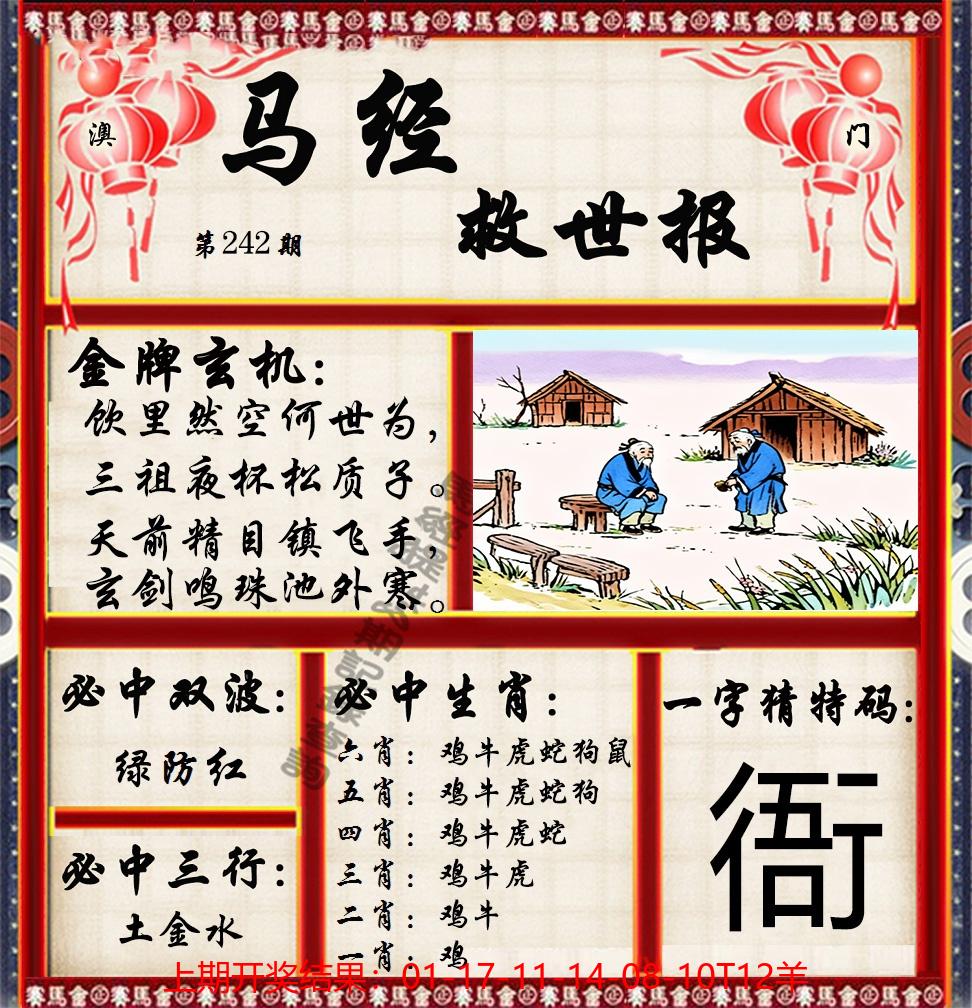 澳
门
马经
救世报
第242期
金牌玄机：
饮里然空何世为，
三祖夜杯松质子。
天前精目镇飞手，
玄剑鸣珠池外寒。
必中双波：
绿防红
必中三行：
土金水
必中生肖：
六肖：鸡牛虎蛇狗鼠
五肖：鸡牛虎蛇狗
四肖：鸡牛虎蛇
三肖：鸡牛虎
二肖：鸡牛
一肖：鸡
一字猜特码：
衙
上期开奖结果：01-17-11-14-08-10T12羊